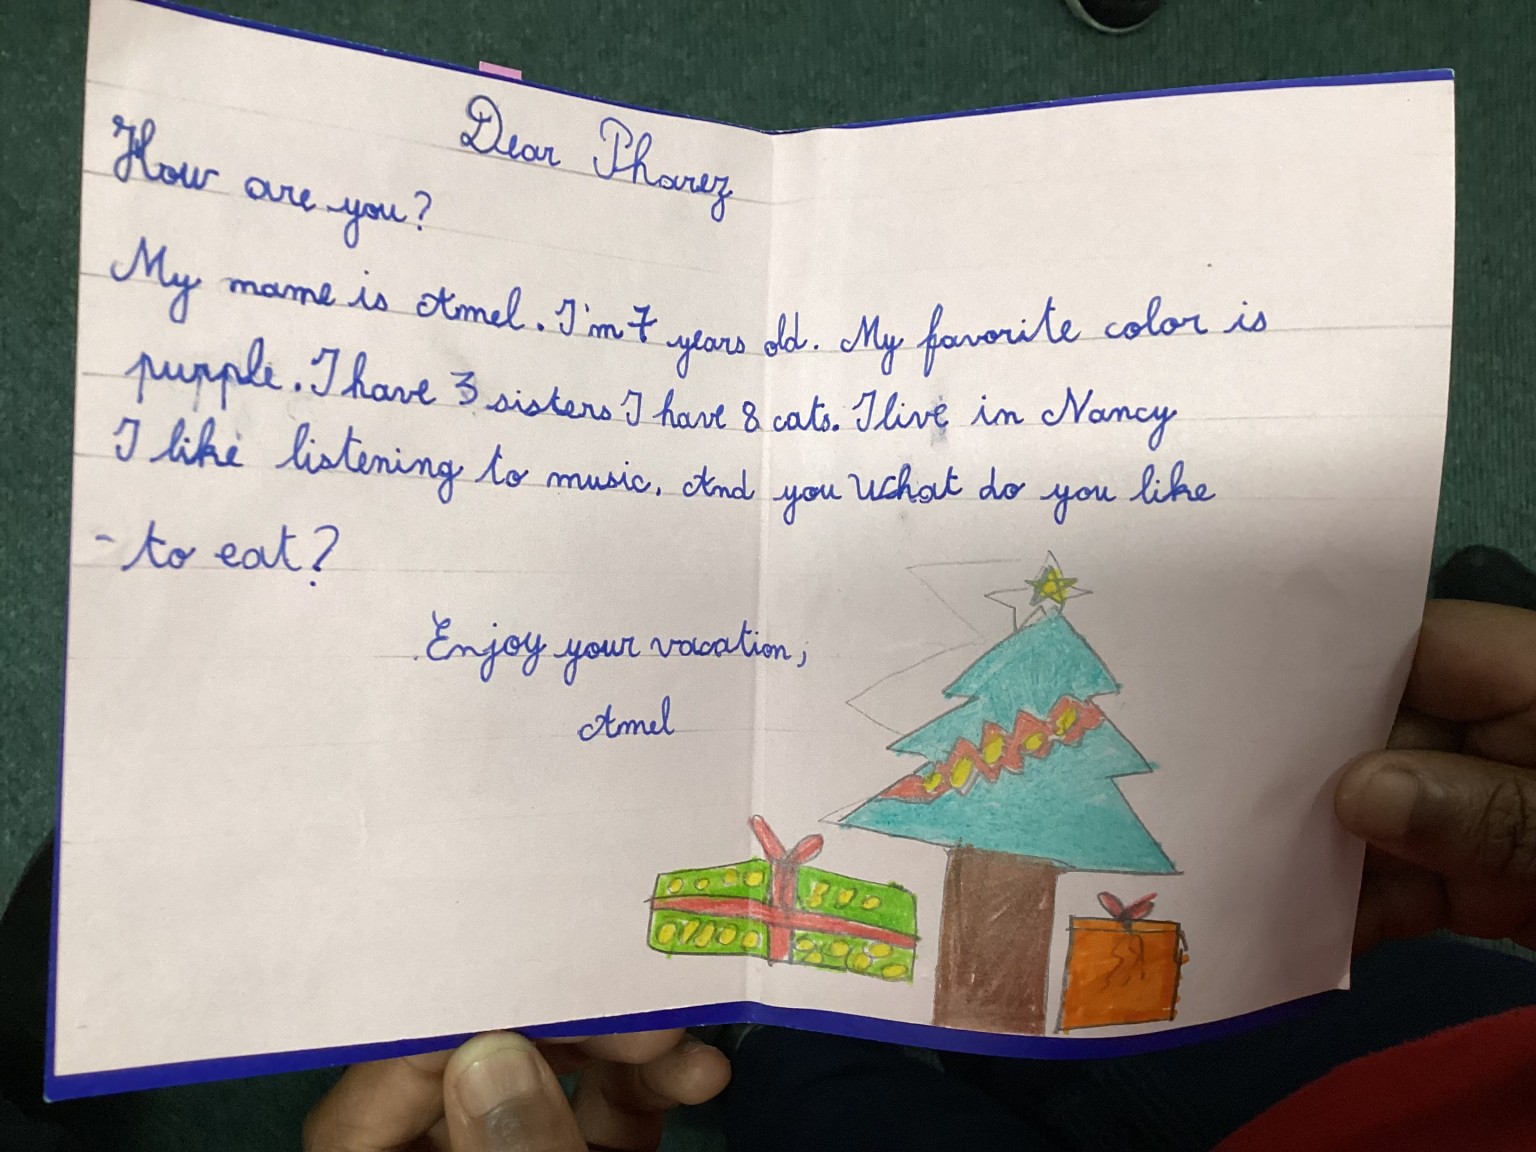 Dear Pharez
How are you?
My name is Amel. I'm 7 years old. My favorite color is
purple. I have 3 sisters I have 8 cats. I live in Nancy
I like listening to music. And you what do you like
- to eat?
Enjoy your vacation,
Amel